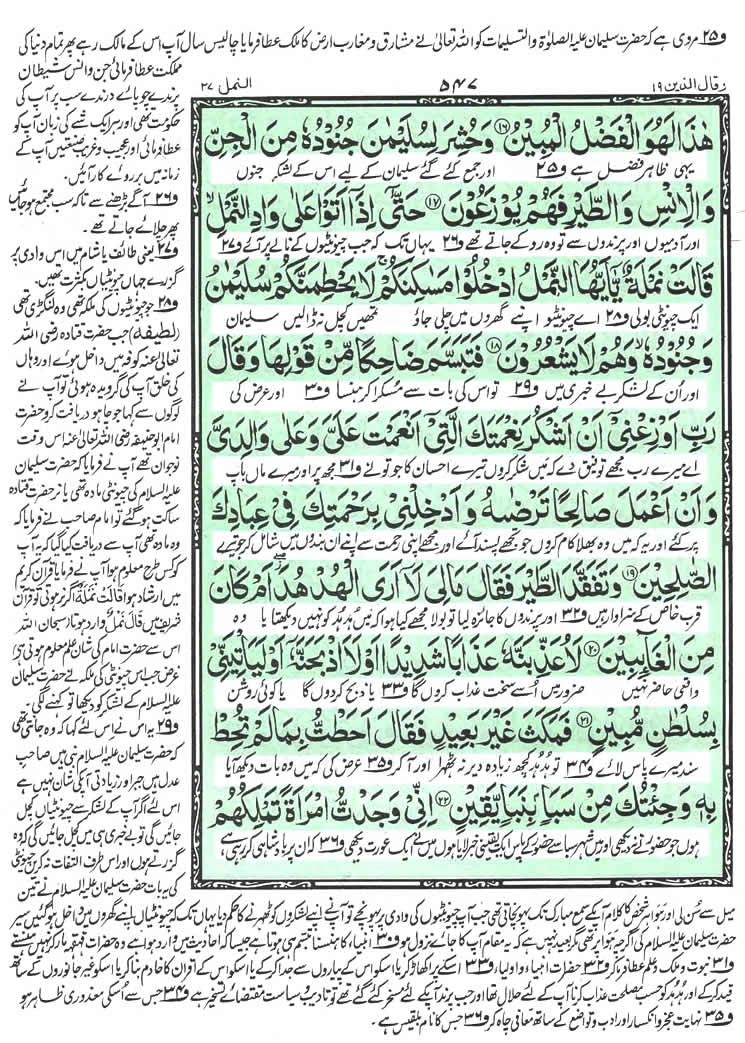 و۲۵ مروی ہے کہ حضرت سلیمان علیہ الصلوٰۃ والتسلیمات کو اللہ تعالیٰ نے مشارق و مغارب ارض کا ملک عطا فرمایا چالیس سال آپ اس کے مالک رہے پھر تمام دنیا کی
وقال الذین ۱۹ ۵۴۷ النمل ۲۷
هٰذَا لَهُوَ الْفَضْلُ الْمُبِیْنُ ۝۱۶ وَ حُشِرَ لِسُلَیْمٰنَ جُنُوْدُهٗ مِنَ الْجِنِّ
یہی ظاہر فضل ہے و۲۵ اور جمع کئے گئے سلیمان کے لیے اس کے لشکر جنوں
وَ الْاِنْسِ وَ الطَّیْرِ فَهُمْ یُوْزَعُوْنَ ۝۱۷ حَتّٰۤی اِذَاۤ اَتَوْا عَلٰی وَادِ النَّمْلِۙ
اور آدمیوں اور پرندوں سے تو وہ روکے جاتے تھے و۲۶ یہاں تک کہ جب چیونٹیوں کے نالے پر آئے و۲۷
قَالَتْ نَمْلَةٌ یّٰۤاَیُّهَا النَّمْلُ ادْخُلُوْا مَسٰكِنَكُمْۚ لَا یَحْطِمَنَّكُمْ سُلَیْمٰنُ
ایک چیونٹی بولی و۲۸ اے چیونٹیو اپنے گھروں میں چلی جاؤ تمھیں کچل نہ ڈالیں سلیمان
وَ جُنُوْدُهٗۙ وَ هُمْ لَا یَشْعُرُوْنَ ۝۱۸ فَتَبَسَّمَ ضَاحِكًا مِّنْ قَوْلِهَا وَ قَالَ
اور اُن کے لشکر بے خبری میں و۲۹ تو اس کی بات سے مسکرا کر ہنسا و۳۰ اور عرض کی
رَبِّ اَوْزِعْنِیْۤ اَنْ اَشْكُرَ نِعْمَتَكَ الَّتِیْۤ اَنْعَمْتَ عَلَیَّ وَ عَلٰی وَالِدَیَّ
اے میرے رب مجھے توفیق دے کہ میں شکر کروں تیرے احسان کا جو تو نے و۳۱ مجھ پر اور میرے ماں باپ
وَ اَنْ اَعْمَلَ صَالِحًا تَرْضٰىهُ وَ اَدْخِلْنِیْ بِرَحْمَتِكَ فِیْ عِبَادِكَ
پر کئے اور یہ کہ میں وہ بھلا کام کروں جو تجھے پسند آئے اور مجھے اپنی رحمت سے اپنے ان بندوں میں شامل کر جو تیرے
الصّٰلِحِیْنَ ۝۱۹ وَ تَفَقَّدَ الطَّیْرَ فَقَالَ مَا لِیَ لَاۤ اَرَی الْهُدْهُدَ ۖ٘ اَمْ كَانَ
قرب خاص کے سزاوار ہیں و۳۲ اور پرندوں کا جائزہ لیا تو بولا مجھے کیا ہوا کہ میں ہُدہُد کو نہیں دیکھتا یا وہ
مِنَ الْغَآىٕبِیْنَ ۝۲۰ لَاُعَذِّبَنَّهٗ عَذَابًا شَدِیْدًا اَوْ لَاۡاَذْبَحَنَّهٗۤ اَوْ لَیَاْتِیَنِّیْ
واقعی حاضر نہیں ضرور میں اُسے سخت عذاب کروں گا و۳۳ یا ذبح کردوں گا یا کوئی روشن
بِسُلْطٰنٍ مُّبِیْنٍ ۝۲۱ فَمَكَثَ غَیْرَ بَعِیْدٍ فَقَالَ اَحَطْتُّ بِمَا لَمْ تُحِطْ
سند میرے پاس لائے و۳۴ تو ہُدہُد کچھ زیادہ دیر نہ ٹھہرا اور آکر و۳۵ عرض کی کہ میں وہ بات دیکھ آیا
بِهٖ وَ جِئْتُكَ مِنْ سَبَاٍۭ بِنَبَاٍ یَّقِیْنٍ ۝۲۲ اِنِّیْ وَجَدْتُّ امْرَاَةً تَمْلِكُهُمْ
ہوں جو حضور نے نہ دیکھی اور میں شہر سبا سے حضور کے پاس ایک یقینی خبر لایا ہوں میں نے ایک عورت دیکھی و۳۶ کہ ان پر بادشاہی کر رہی ہے،
مملکت عطا فرمائی جن و انس شیطان
پرندے چوپائے درندے سب پر آپ کی
حکومت تھی اور ہر ایک شے کی زبان آپ کو
عطا فرمائی اور عجیب و غریب صنعتیں آپ کے
زمانہ میں بروئے کار آئیں۔
و۲۶ آگے بڑھنے سے تاکہ سب مجتمع ہوجائیں
پھر چلائے جاتے تھے۔
و۲۷ یعنی طائف یا شام میں اس وادی پر
گزرے جہاں چیونٹیاں بکثرت تھیں۔
و۲۸ جو چیونٹیوں کی ملکہ تھی وہ لنگڑی تھی
(لطیفہ) جب حضرت قتادہ رضی اللہ
تعالیٰ عنہ کوفہ میں داخل ہوئے اور وہاں
کی خلق آپ کی گرویدہ ہوئی تو آپ نے
لوگوں سے کہا جو چاہو دریافت کرو حضرت
امام ابوحنیفہ رضی اللہ تعالیٰ عنہ اس وقت
نوجوان تھے آپ نے فرمایا کہ حضرت سلیمان
علیہ السلام کی چیونٹی مادہ تھی یا نر حضرت قتادہ
ساکت ہوگئے تو امام صاحب نے فرمایا کہ
وہ مادہ تھی آپ سے دریافت کیا گیا کہ یہ آپ
کو کس طرح معلوم ہوا آپ نے فرمایا قرآن کریم
میں ارشاد ہوا قَالَتْ نَمْلَةٌ اگر نر ہوتی تو قرآن
شریف میں قَالَ نَمْلٌ وارد ہوتا (سبحان اللہ
اس سے حضرت امام کی شان علم معلوم ہوتی ہے)
غرض جب اس چیونٹی کی ملکہ نے حضرت سلیمان
علیہ السلام کے لشکر کو دیکھا تو کہنے لگی۔
و۲۹ یہ اس نے اس لئے کہا کہ وہ جانتی تھی
کہ حضرت سلیمان علیہ السلام نبی ہیں صاحب
عدل ہیں جبر اور زیادتی آپکی شان نہیں ہے
اس لئے اگر آپ کے لشکر سے چیونٹیاں کچل
جائیں گی تو بے خبری ہی میں کچل جائیں گی کہ وہ
گزرتے ہوں اور اس طرف التفات نہ کریں چیونٹی
کی یہ بات حضرت سلیمان علیہ السلام نے تین
میل سے سُن لی اور ہوا ہر شخص کا کلام آپ کے سمع مبارک تک پہونچاتی تھی جب آپ چیونٹیوں کی وادی پر پہونچے تو آپنے اپنے لشکروں کو ٹھہرنے کا حکم دیا یہاں تک کہ چیونٹیاں اپنے گھروں میں داخل ہوگئیں سیر
حضرت سلیمان علیہ السلام کی اگرچہ ہوا پر تھی مگر بعید نہیں ہے کہ یہ مقام آپ کا جائے نزول ہو و۳۰ انبیاء کا ہنسنا تبسم ہی ہوتا ہے جیسا کہ احادیث میں وارد ہوا ہے وہ حضرات قہقہہ مار کر نہیں ہنستے
و۳۱ نبوت و ملک و علم عطا فرما کر و۳۲ حضرات انبیاء و اولیاء و۳۳ اسکے پر اکھاڑ کر یا اسکو اس کے پیاروں سے جدا کرکے یا اسکو اس کے اقران کا خادم بنا کر یا اسکو غیر جانوروں کے ساتھ
قید کرکے اور ہُدہُد کو حسب مصلحت عذاب کرنا آپ کے لئے حلال تھا اور جب پرند آپکے لئے مسخر کئے گئے تھے تو تادیب و سیاست مقتضائے تسخیر ہے و۳۴ جس سے اُسکی معذوری ظاہر ہو
و۳۵ نہایت عجز و انکسار اور ادب و تواضع کے ساتھ معافی چاہ کر و۳۶ جس کا نام بلقیس ہے۔